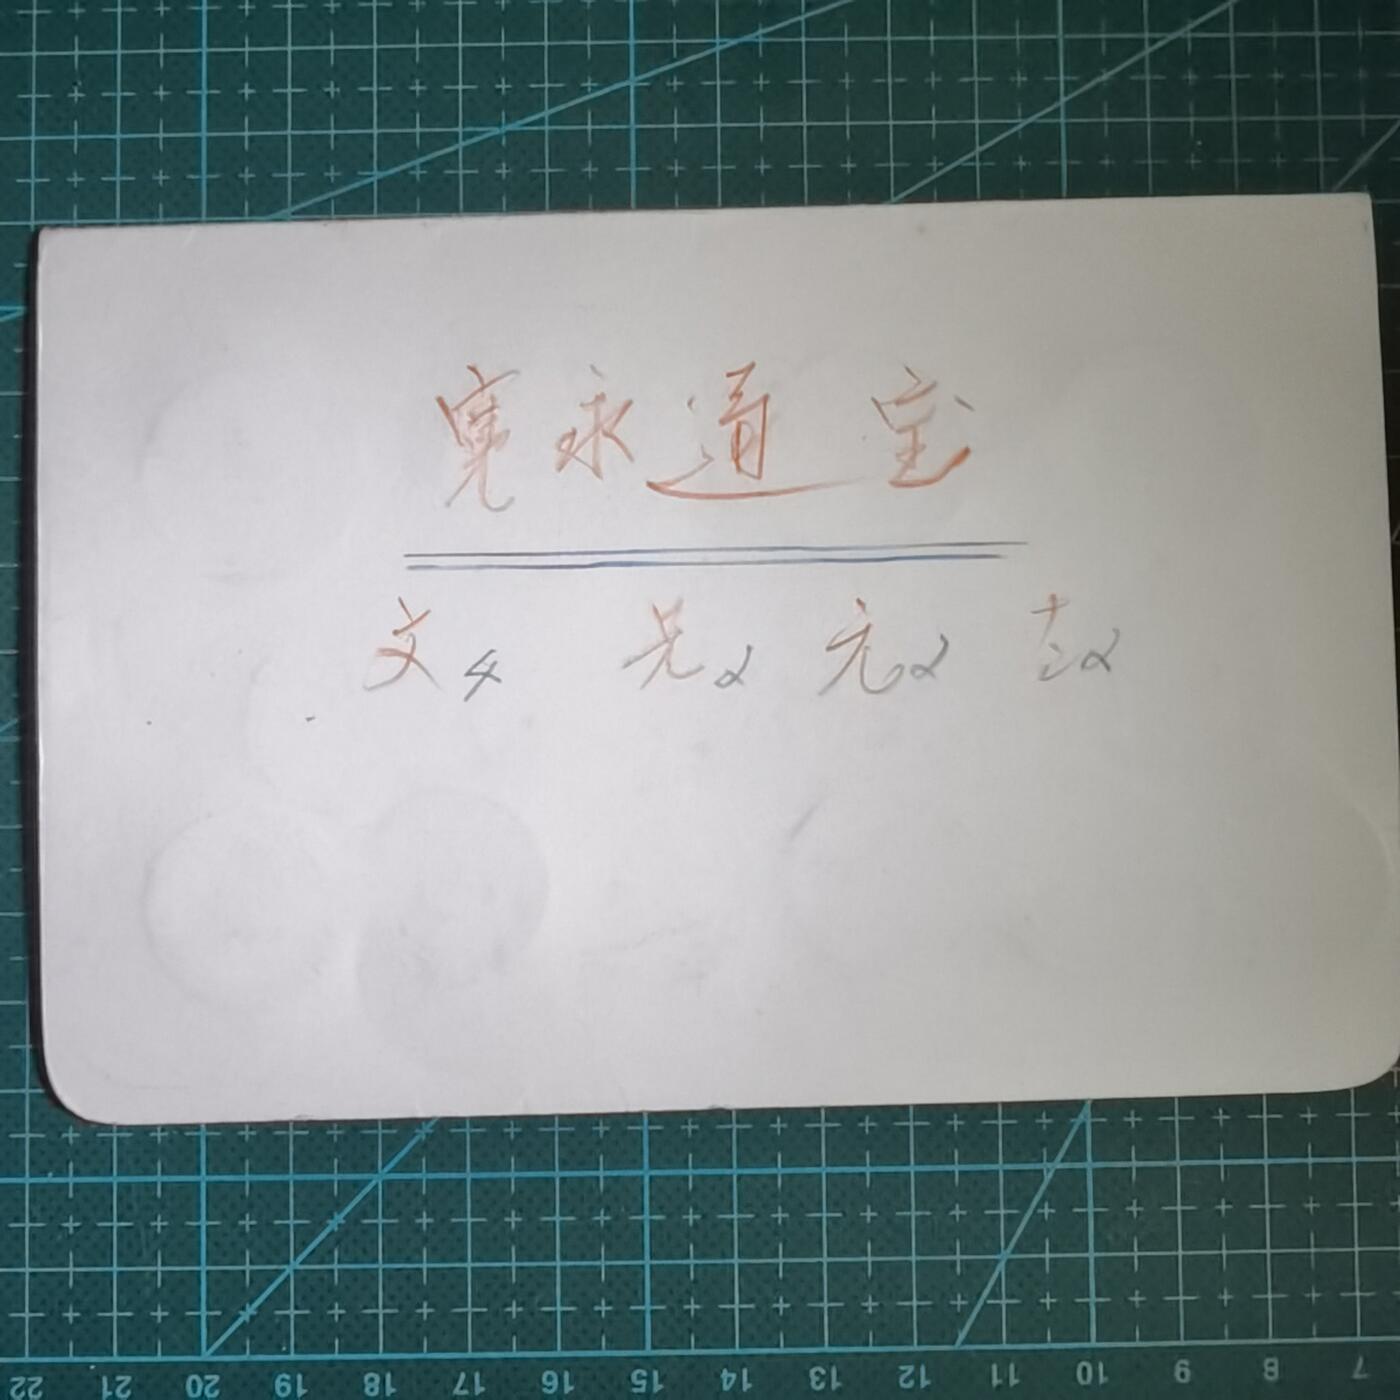 寛永通宝
文4 元2
22 21 20 19 18 17 16 15 14 13 12 11 10 9 8 7